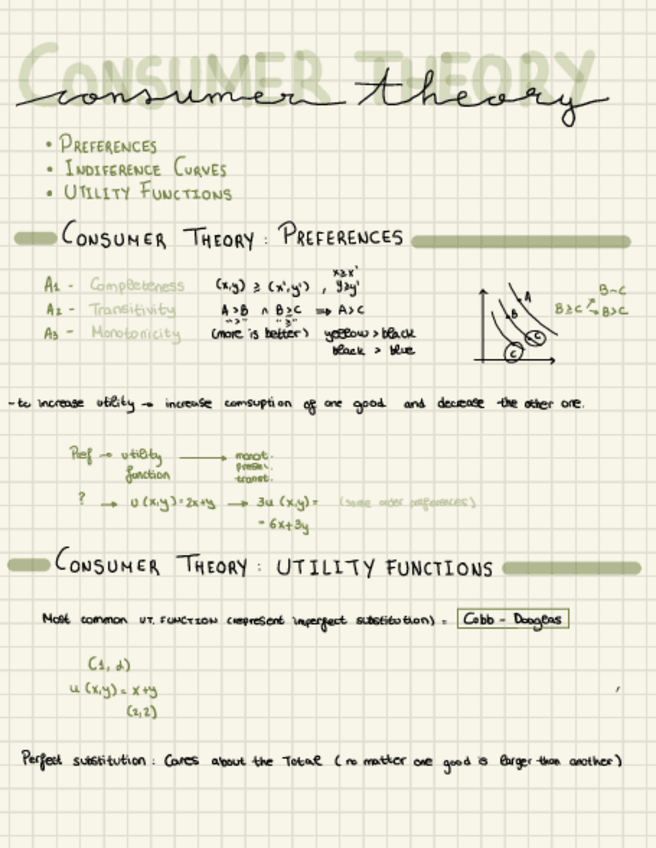 CONSUMER THEORY
consumer theory
• PREFERENCES
• INDIFERENCE CURVES
• UTILITY FUNCTIONS
CONSUMER THEORY : PREFERENCES
A1 - Completeness (x,y) ≥ (x',y') , x≥x' y≥y'
A2 - Transitivity A>B ∧ B≥C ⇒ A>C
">" "≥"
A3 - Monotonicity (more is better) yellow > black
black > blue
A
B
C
C
B~C
B≥C
B>C
- to increase utility → increase comsuption of one good and decrease the other one.
Pref → utility function → monot.
transt.
? → u(x,y)=2x+y → 3u(x,y)= (same order preferences)
= 6x+3y
CONSUMER THEORY : UTILITY FUNCTIONS
Most common UT. FUNCTION (represent imperfect substitution) = Cobb - Douglas
u(x,y) = x+y
(2,2)
Perfect substitution : Cares about the Total (no matter one good is larger than another)